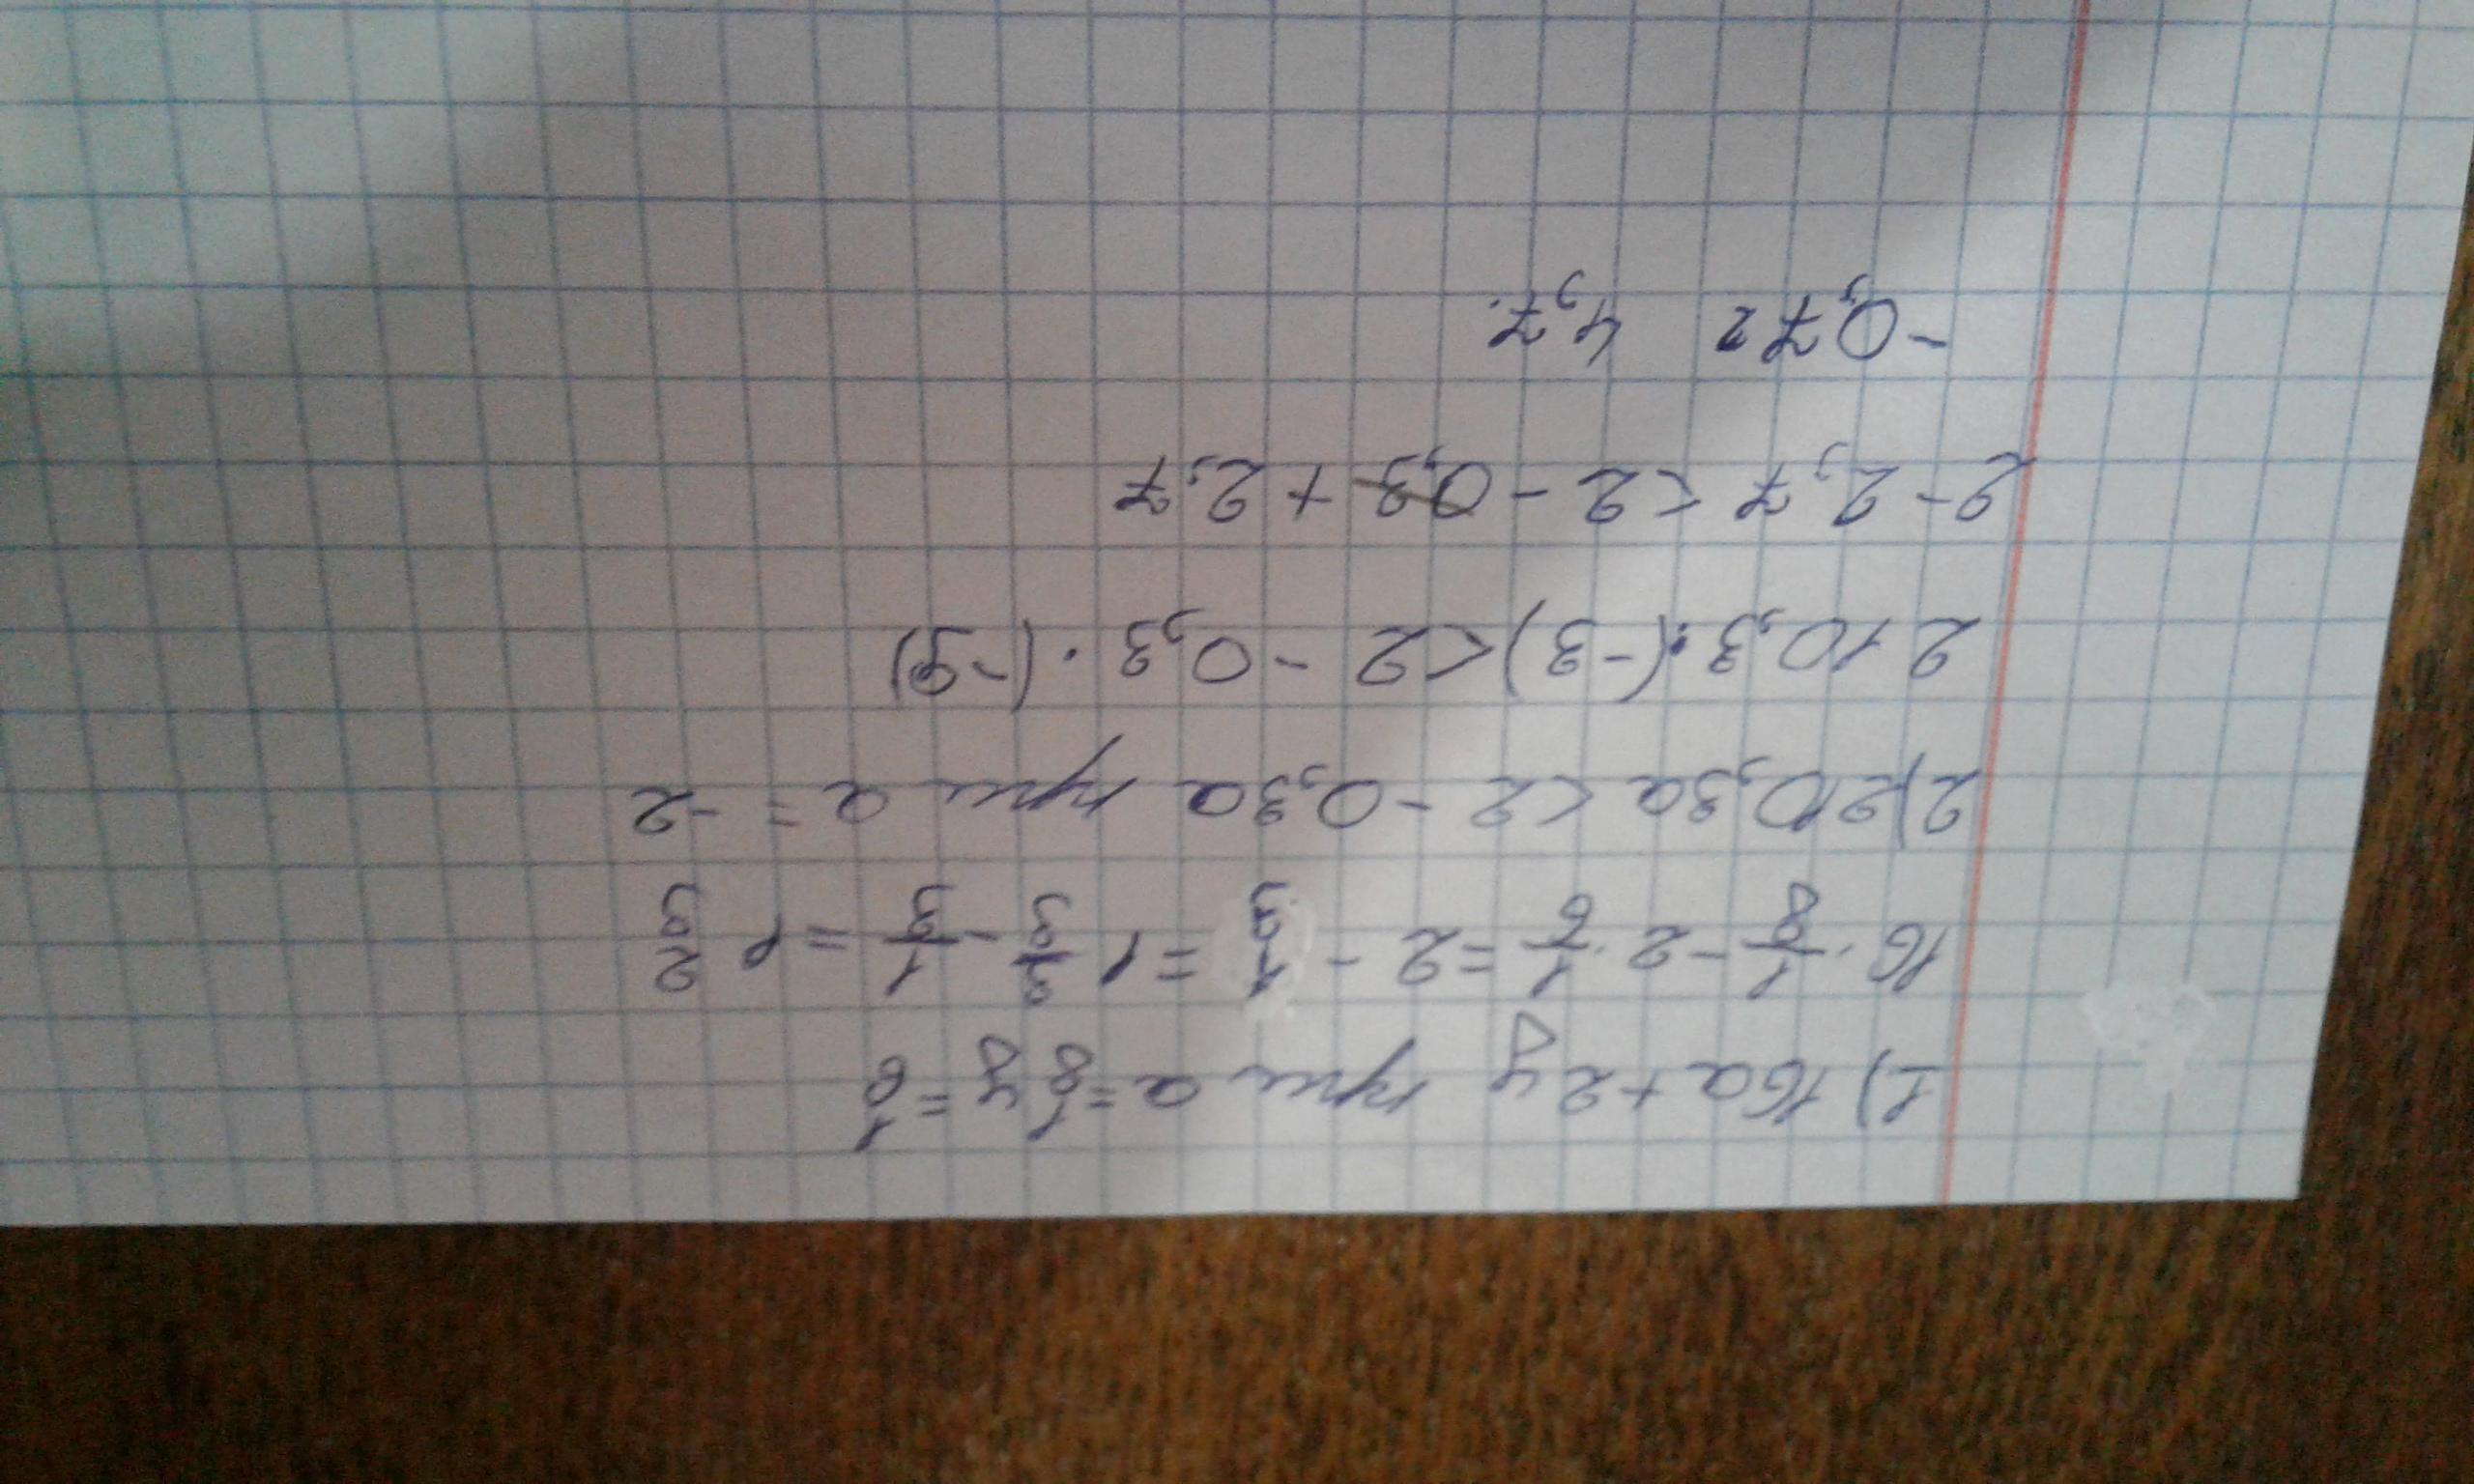 1) 16a + 2y при a = 1/8 y = 1/6
16 · 1/8 - 2 · 1/6 = 2 - 1/3 = 1 3/3 - 1/3 = 1 2/3
2) 2+0,3a < 2 - 0,3a при a = -2
2+0,3 · (-3) < 2 - 0,3 · (-9)
2 - 2,7 < 2 - 0,3 + 2,7
-0,7 2 4,7.